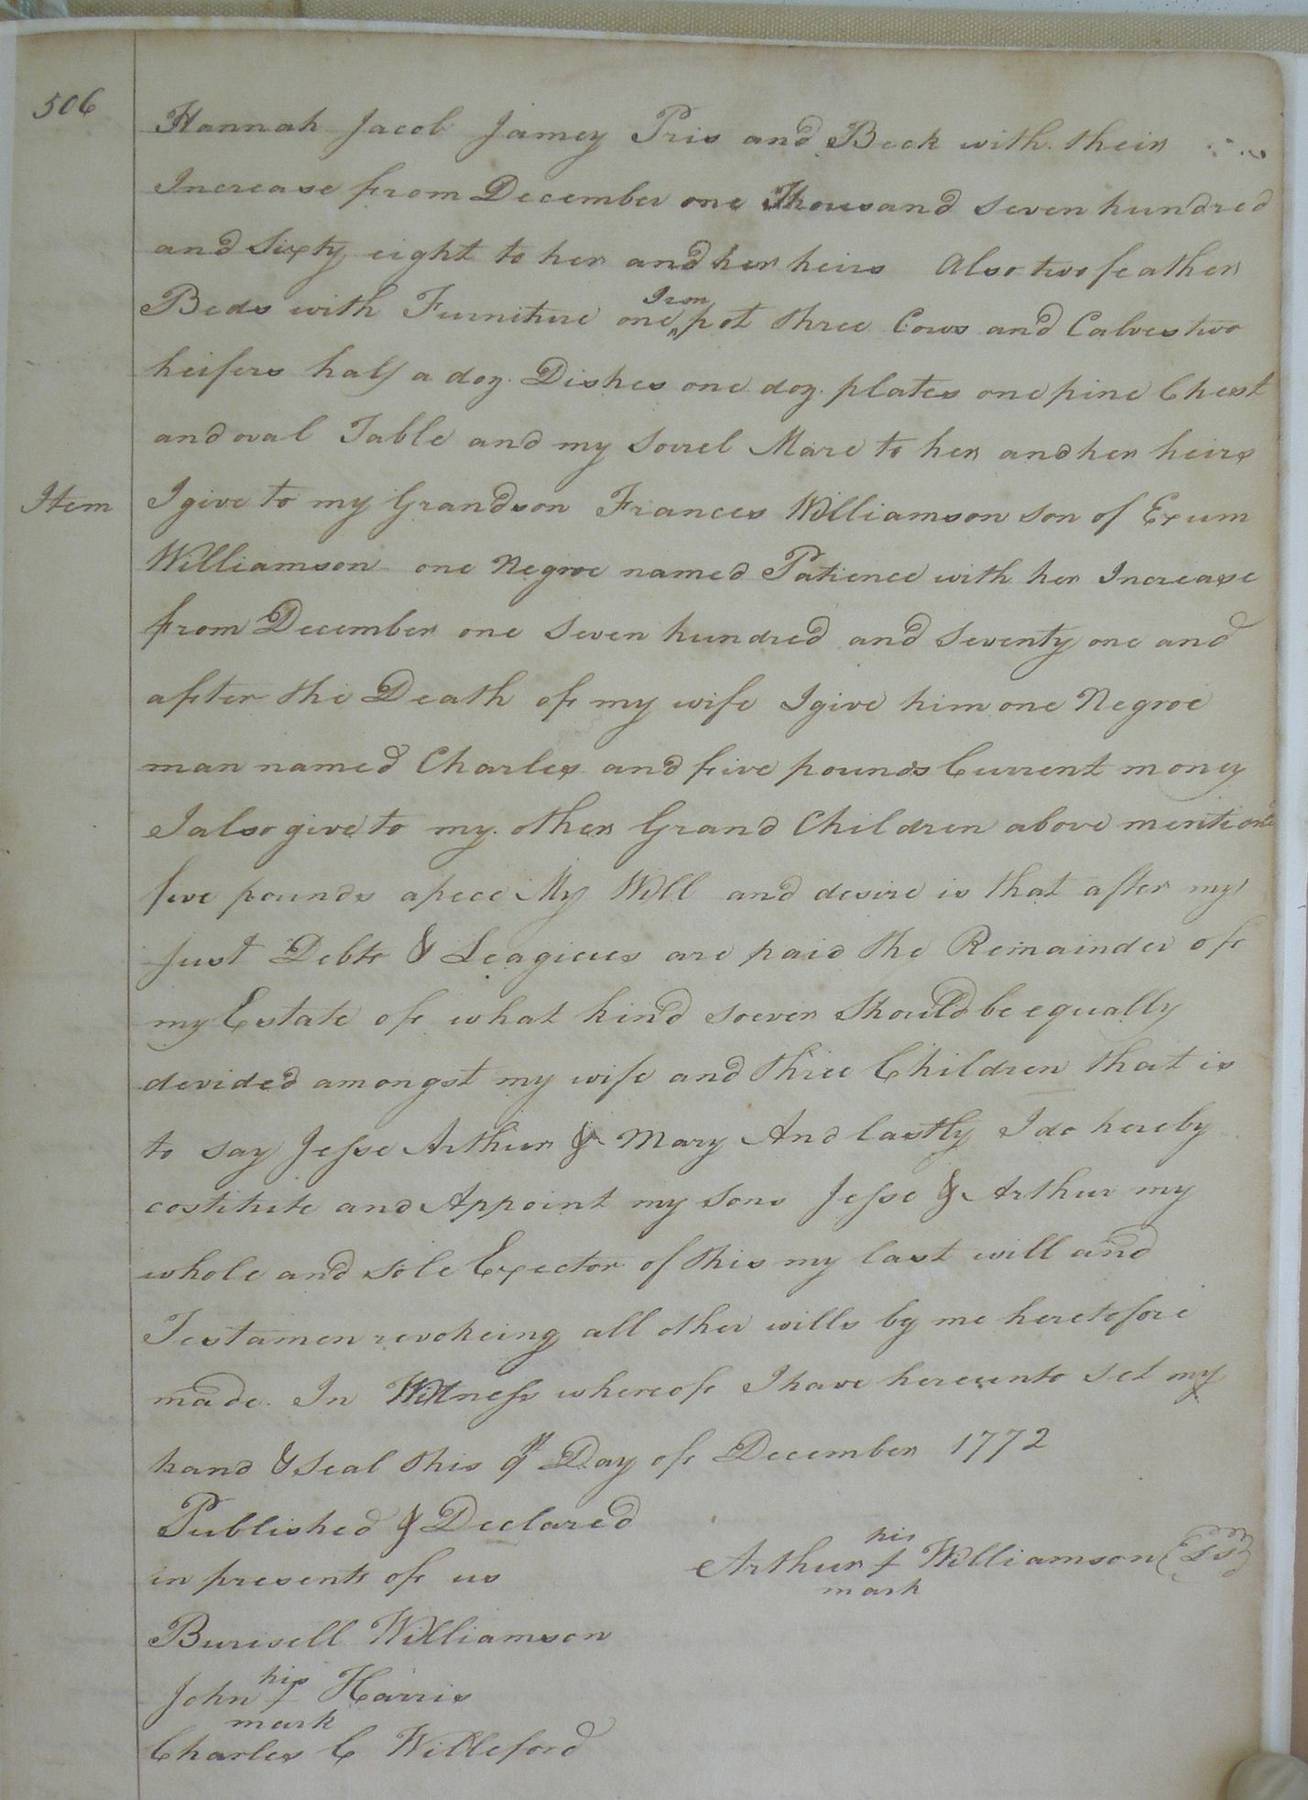 506
Hannah Jacob Jamey Pris and Beck with their
Increase from December one Thousand seven hundred
and sixty eight to her and her heirs Also two feather
Beds with Furniture one Iron pot three Cows and Calves two
heifers half a doz. Dishes one doz. plates one pine Chest
and oval Table and my sorrel Mare to her and her heirs
Item I give to my Grandson Frances Williamson son of Exum
Williamson one Negroe named Patience with her Increase
from December one seven hundred and seventy one and
after the Death of my wife I give him one Negroe
man named Charles and five pounds Current money
I also give to my other Grand Children above mentiond
five pounds apece My Will and desire is that after my
just Debts & Leagicies are paid the Remainder of
my Estate of what kind soever should be equally
devided amongst my wife and three Children that is
to say Jesse Arthur & Mary And lastly I do hereby
costitute and Appoint my sons Jesse & Arthur my
whole and sole Exector of this my last will and
Testamen revokeing all other wills by me heretofore
made. In Witness whereof I have hereunto set my
hand & Seal this Day of December 1772
Published & Declared
in presents of us
his
Arthur + Williamson
mark
Burwell Williamson
his
John + Harris
mark
Charles C Willeford